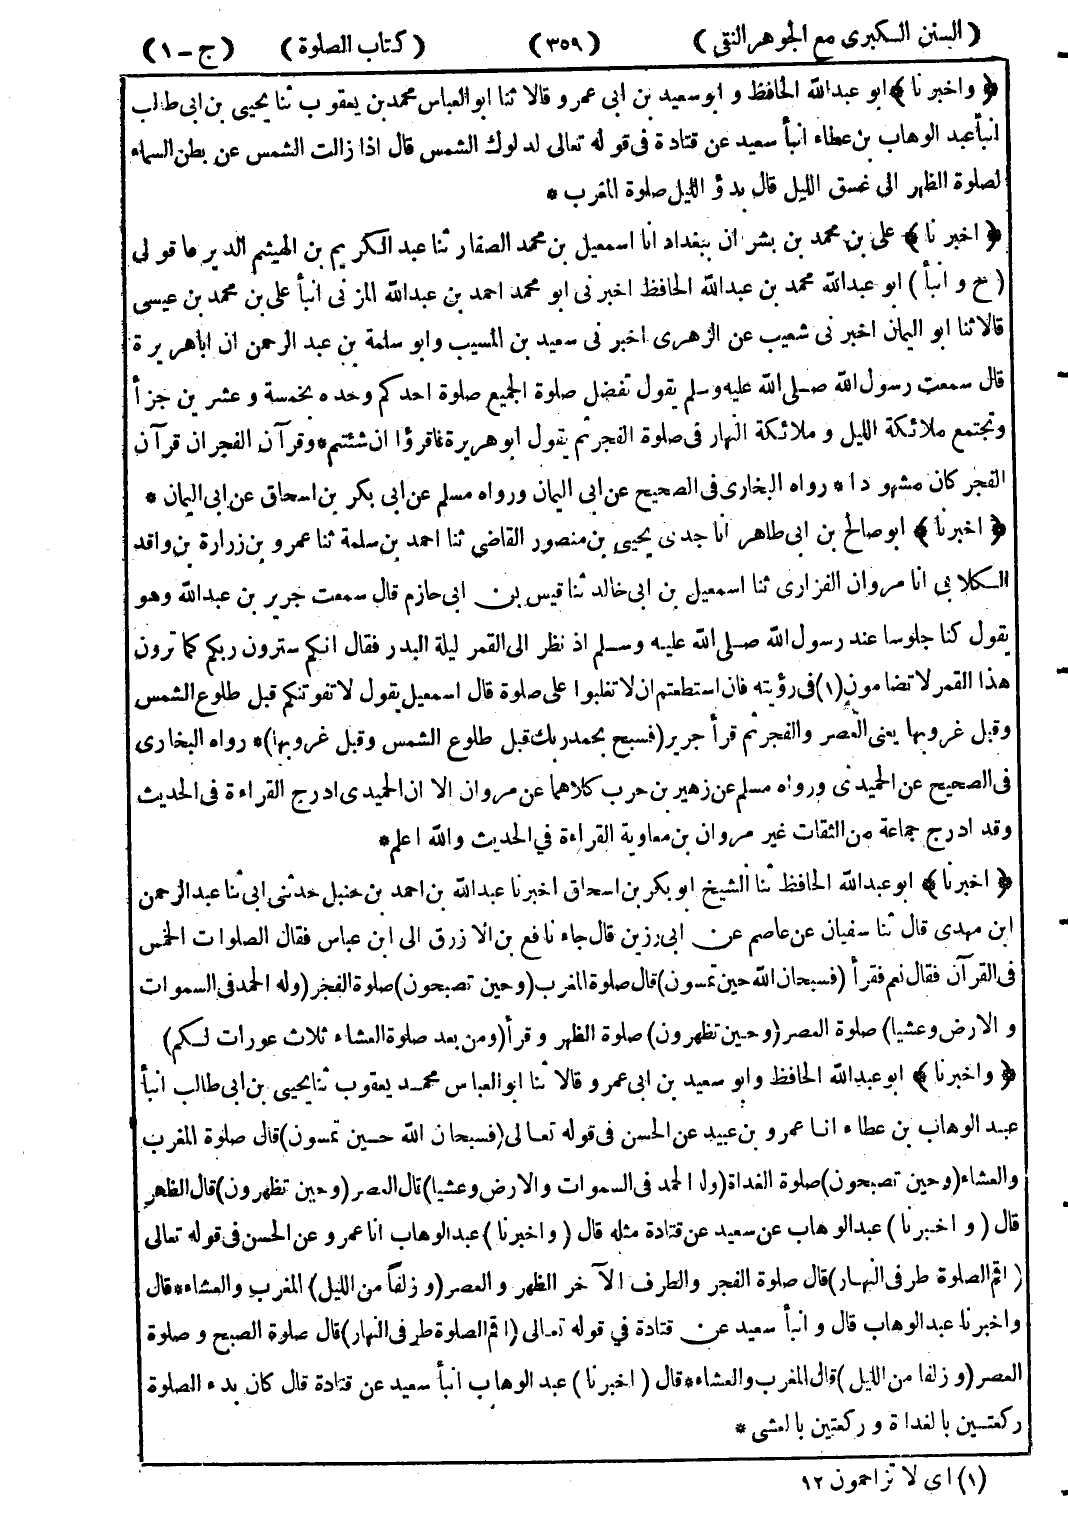 ( السنن الكبرى مع الجوهر النقى ) (٣٥٩) ( كتاب الصلوة ) ( ج - ١ )
﴿ واخبرنا ﴾ ابو عبدالله الحافظ و ابو سعيد بن ابى عمرو قالا ثنا ابو العباس محمد بن يعقوب ثنا يحيى بن ابى طالب
انبأ عبد الوهاب بن عطاء انبأ سعيد عن قتادة فى قوله تعالى لدلوك الشمس قال اذا زالت الشمس عن بطن السماء
لصلوة الظهر الى غسق الليل قال بدؤ الليل صلوة المغرب *
﴿ اخبرنا ﴾ على بن محمد بن بشران ببغداد انا اسمعيل بن محمد الصفار ثنا عبد الكريم بن الهيثم الديرعاقولى
( ح و انبأ ) ابو عبدالله محمد بن عبدالله الحافظ اخبرنى ابو محمد احمد بن عبدالله المزنى انبأ على بن محمد بن عيسى
قالا ثنا ابو اليمان اخبرنى شعيب عن الزهرى اخبرنى سعيد بن المسيب وابو سلمة بن عبد الرحمن ان اباهريرة
قال سمعت رسول الله صلى الله عليه وسلم يقول تفضل صلوة الجميع صلوة احدكم وحده بخمسة وعشرين جزأ
وتجتمع ملائكة الليل و ملائكة النهار فى صلوة الفجر ثم يقول ابو هريرة فاقرؤا ان شئتم * وقرآن الفجر ان قرآن
الفجر كان مشهودا * رواه البخارى فى الصحيح عن ابى اليمان ورواه مسلم عن ابى بكر بن اسحاق عن ابى اليمان *
﴿ اخبرنا ﴾ ابو صالح بن ابى طاهر انا جدى يحيى بن منصور القاضى ثنا احمد بن سلمة ثنا عمرو بن زرارة بن واقد
الكلابى انا مروان الفزارى ثنا اسمعيل بن ابى خالد ثنا قيس بن ابى حازم قال سمعت جرير بن عبدالله وهو
يقول كنا جلوسا عند رسول الله صلى الله عليه وسلم اذ نظر الى القمر ليلة البدر فقال انكم سترون ربكم كما ترون
هذا القمر لا تضامون (١) فى رؤيته فان استطعتم ان لا تغلبوا على صلوة قال اسمعيل يقول لا تفوتنكم قبل طلوع الشمس
وقبل غروبها يعنى العصر والفجر ثم قرأ جرير (فسبح بحمد ربك قبل طلوع الشمس وقبل غروبها) * رواه البخارى
فى الصحيح عن الحميدى ورواه مسلم عن زهير بن حرب كلاهما عن مروان الا ان الحميدى ادرج القراءة فى الحديث
وقد ادرج جماعة من الثقات غير مروان بن معاوية القراءة في الحديث والله اعلم *
﴿ اخبرنا ﴾ ابو عبدالله الحافظ ثنا الشيخ ابو بكر بن اسحاق اخبرنا عبدالله بن احمد بن حنبل حدثنى ابى ثنا عبد الرحمن
ابن مهدى قال ثنا سفيان عن عاصم عن ابى رزين قال جاء نافع بن الازرق الى ابن عباس فقال الصلوات الخمس
فى القرآن فقال نعم فقرأ (فسبحان الله حين تمسون) قال صلوة المغرب (وحين تصبحون) صلوة الفجر (وله الحمد فى السموات
و الارض وعشيا) صلوة العصر (وحين تظهرون) صلوة الظهر و قرأ (ومن بعد صلوة العشاء ثلاث عورات لكم)
﴿ واخبرنا ﴾ ابو عبدالله الحافظ وابو سعيد بن ابى عمرو قالا ثنا ابو العباس محمد يعقوب ثنا يحيى بن ابى طالب انبأ
عبد الوهاب بن عطاء انا عمرو بن عبيد عن الحسن فى قوله تعالى (فسبحان الله حين تمسون) قال صلوة المغرب
والعشاء (وحين تصبحون) صلوة الغداة (وله الحمد فى السموات والارض وعشيا) قال العصر (وحين تظهرون) قال الظهر
قال ( و اخبرنا ) عبد الوهاب عن سعيد عن قتادة مثله قال ( و اخبرنا ) عبد الوهاب انا عمرو عن الحسن فى قوله تعالى
( اقم الصلوة طرفى النهار) قال صلوة الفجر والطرف الآخر الظهر و العصر (و زلفا من الليل) المغرب والعشاء * قال
واخبرنا عبد الوهاب قال و انبأ سعيد عن قتادة في قوله تعالى (اقم الصلوة طرفى النهار) قال صلوة الصبح و صلوة
العصر (و زلفا من الليل) قال المغرب والعشاء * قال ( اخبرنا ) عبد الوهاب انبأ سعيد عن قتادة قال كان بدء الصلوة
ركعتين بالغداة و ركعتين بالعشى *
(١) اى لا تزاحمون ١٢